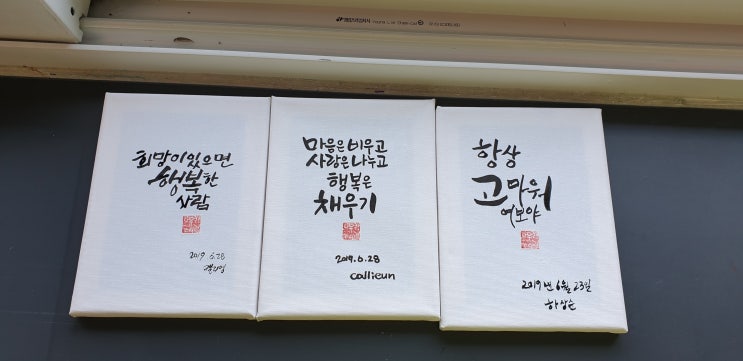 희망이 있으면
행복한
사람
2019. 6. 28
마음은 비우고
사랑은 나누고
행복은
채우기
2019. 6. 28
callieun
항상
고마워
여보야
2019년 6월 23일
하상순